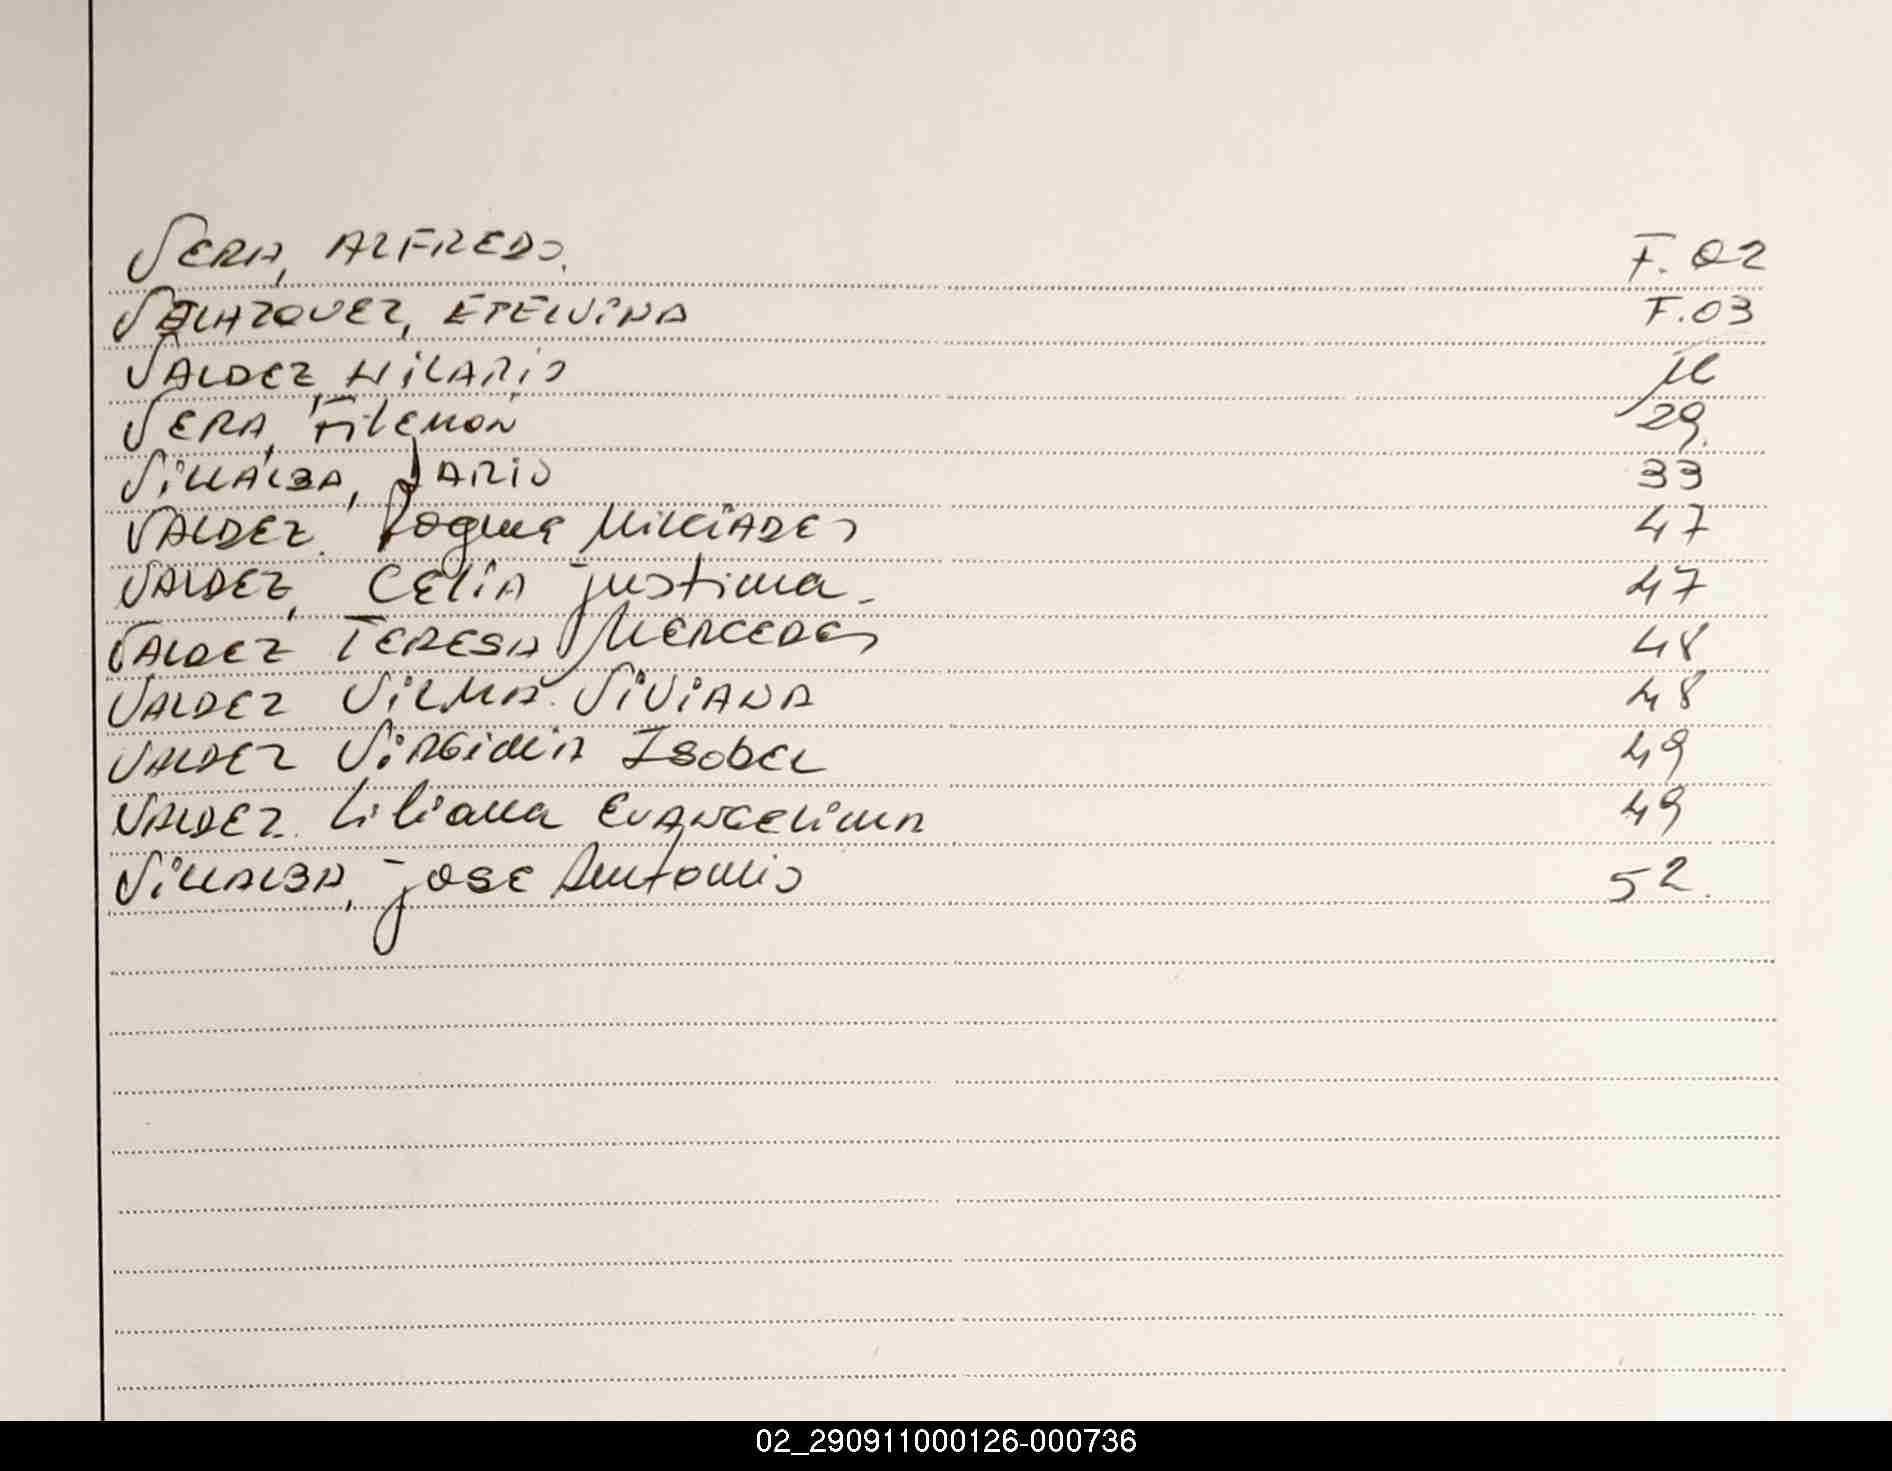 VERA, ALFREDO. F. 02
VELAZQUEZ, ETELVINA F.03
VALDEZ, HILARIO
VERA, FILEMON 29.
VILLALBA, DARIO 33
VALDEZ. MILCIADES 47
VALDEZ, CELIA justina 47
VALDEZ TERESA MERCEDES 48
VALDEZ VILMA VIVIANA 48
VALDEZ VIRGINIA ISABEL 49
VALDEZ. Liliana EVANGELINA 49
VILLALBA, JOSE Antonio 52.
02_290911000126-000736